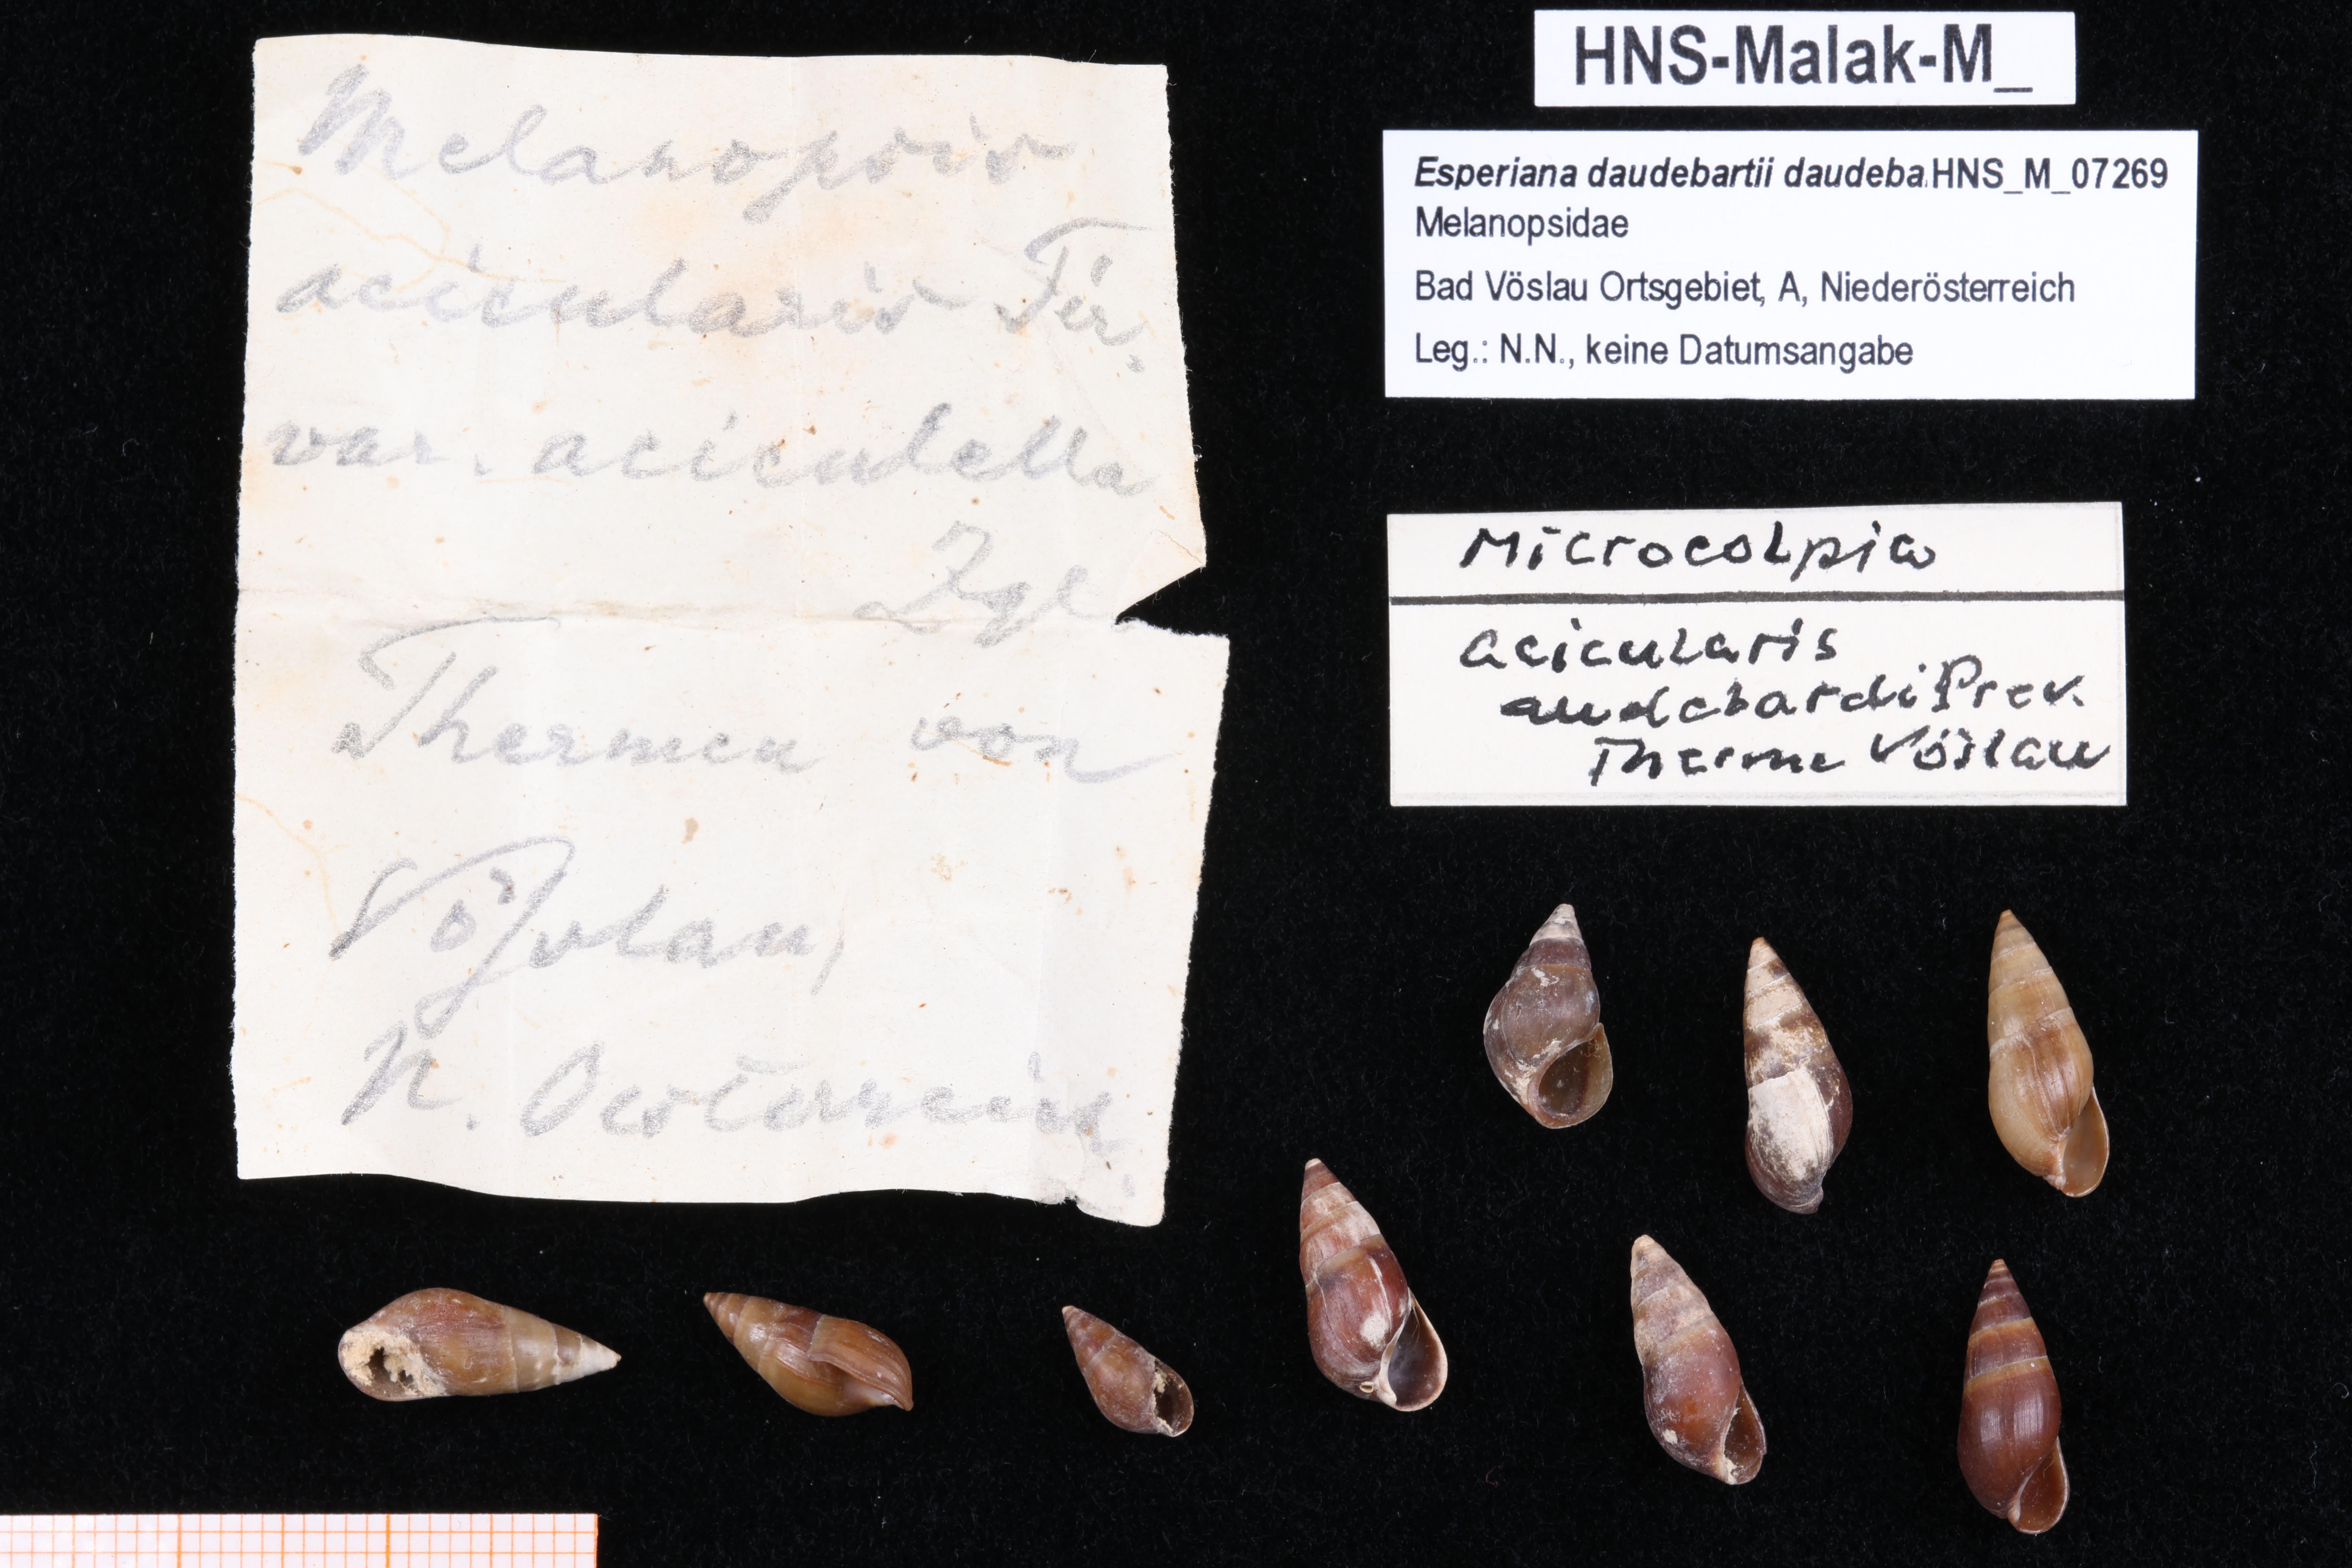 Melanopsis
acicularis Fér.
var. aciculella
Zgl.
Thermen von
Vöslau,
N. Oesterreich.
HNS-Malak-M_
Esperiana daudebartii daudeba HNS_M_07269
Melanopsidae
Bad Vöslau Ortsgebiet, A, Niederösterreich
Leg.: N.N., keine Datumsangabe
Microcolpia
acicularis
audebardi Prev.
Therme Vöslau